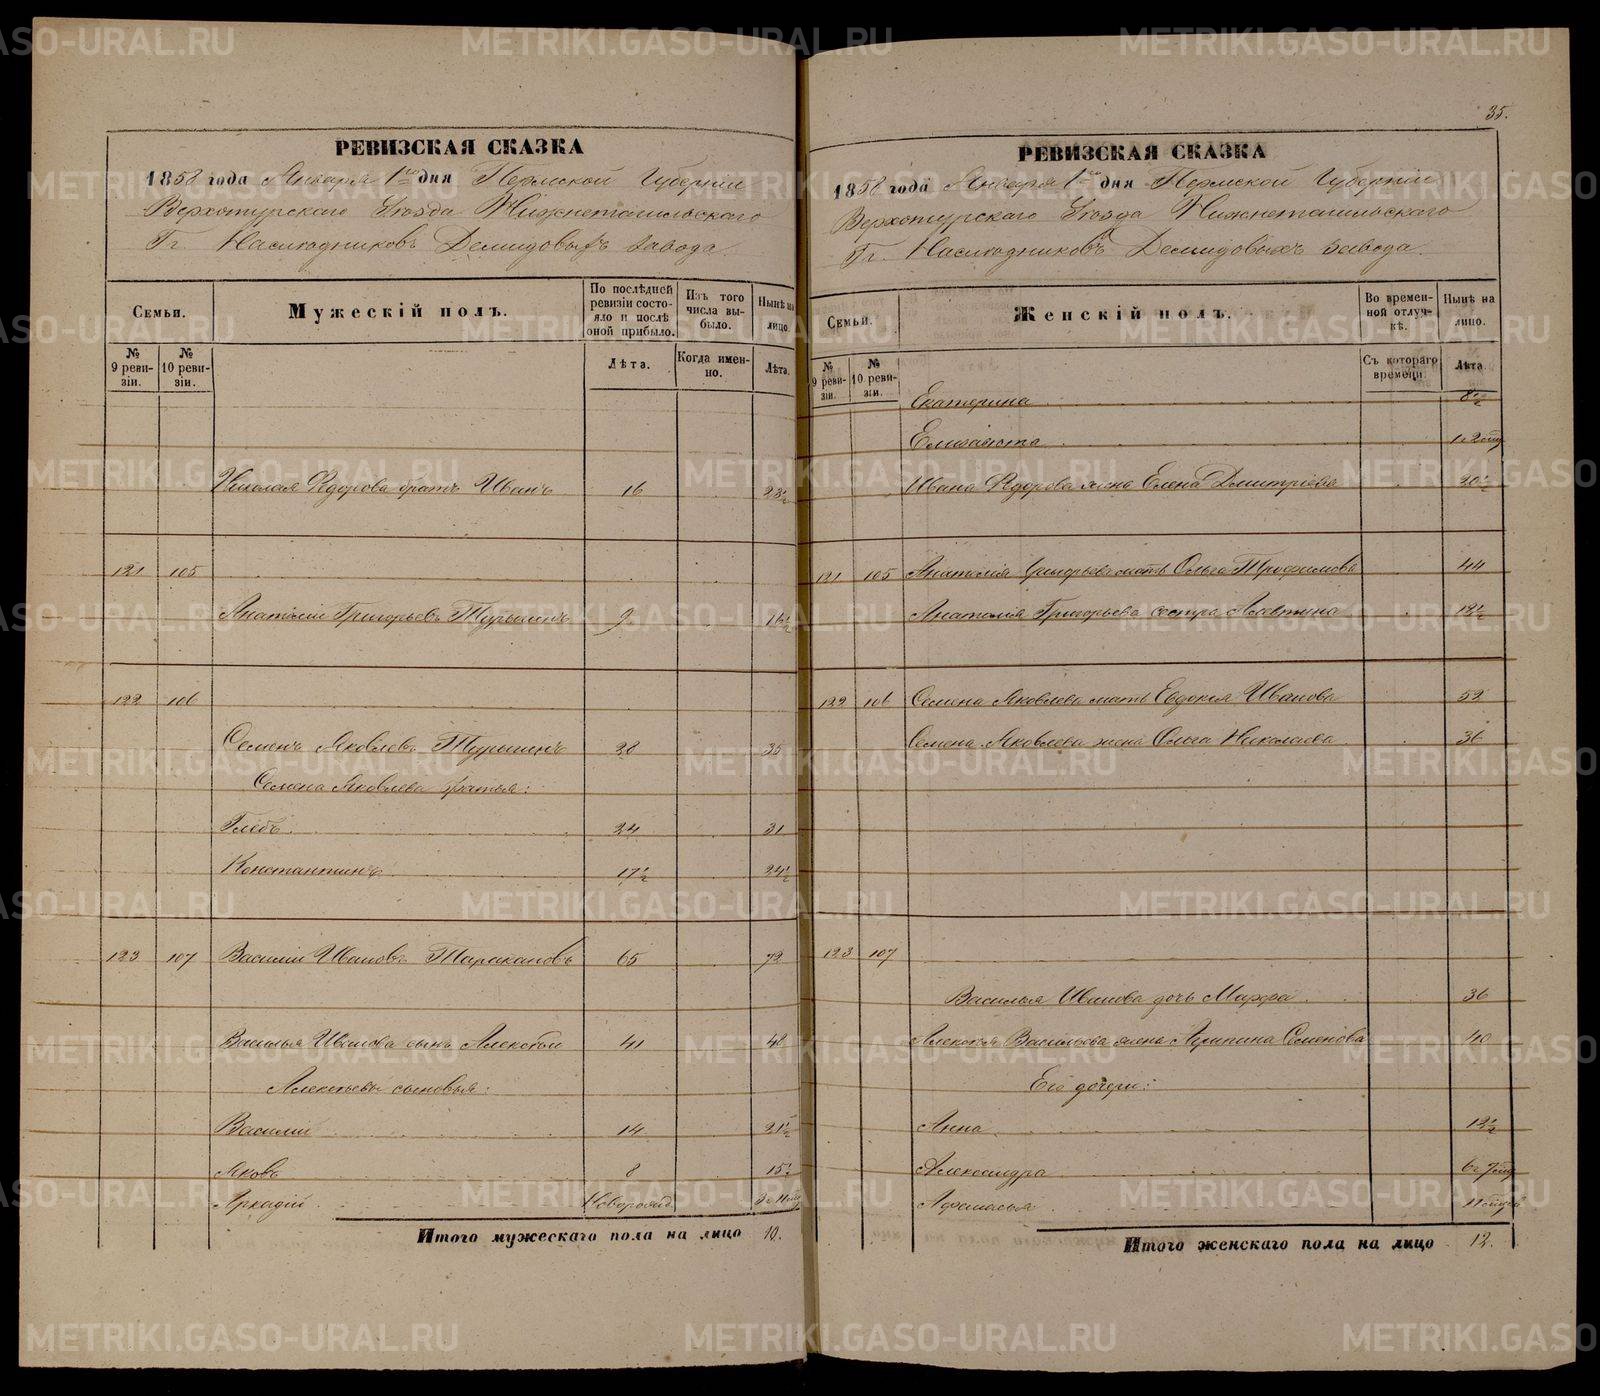 РЕВИЗСКАЯ СКАЗКА
1858 года Января 1го дня Пермской Губерніи
Верхотурскаго Уезда Нижнетагильскаго
Гг. Наследниковъ Демидовыхъ завода
Семьи.
Мужескій полъ.
По послѣдней ревизіи состояло и послѣ оной прибыло.
Изъ того числа выбыло.
Нынѣ на лицо.
№ 9 ревизіи.
№ 10 ревизіи.
Лѣта.
Когда именно.
Лѣта.
Николая Федорова братъ Иванъ 16 23½
121 105
Анатолій Григорьевъ Турыгинъ 9 16½
122 106
Семенъ Яковлевъ Турыгинъ 28 35
Семена Яковлева братья:
Глебъ 24 31
Константинъ 17½ 24½
123 107 Василій Ивановъ Таракановъ 65 72
Василья Иванова сынъ Алексей 41 48
Алексеевы сыновья:
Василій 14 21½
Яковъ 8 15½
Аркадій Новорожд.
Итого мужескаго пола на лицо 10.
35.
РЕВИЗСКАЯ СКАЗКА
1858 года Января 1го дня Пермской Губерніи
Верхотурскаго Уезда Нижнетагильскаго
Гг. Наследниковъ Демидовыхъ завода.
Семьи.
Женскій полъ.
Во временной отлучкѣ.
Нынѣ на лицо.
№ 9 ревизіи.
№ 10 ревизіи.
Съ котораго времени.
Лѣта.
Екатерина 8½
Елизавета
Ивана Федорова жена Елена Дмитріева 20½
121 105 Анатолія Григорьева мать Ольга Трофимова 44
Анатолія Григорьева сестра Алевтина 18½
122 106 Семена Яковлева мать Евдокія Иванова 52
Семена Яковлева жена Ольга Николаева 36
123 107
Василья Иванова дочь Марфа 36
Алексея Васильева жена Агрипина Семенова 40
Его дочери:
Анна 12½
Александра
Афанасья
Итого женскаго пола на лицо 12.
METRIKI.GASO-URAL.RU